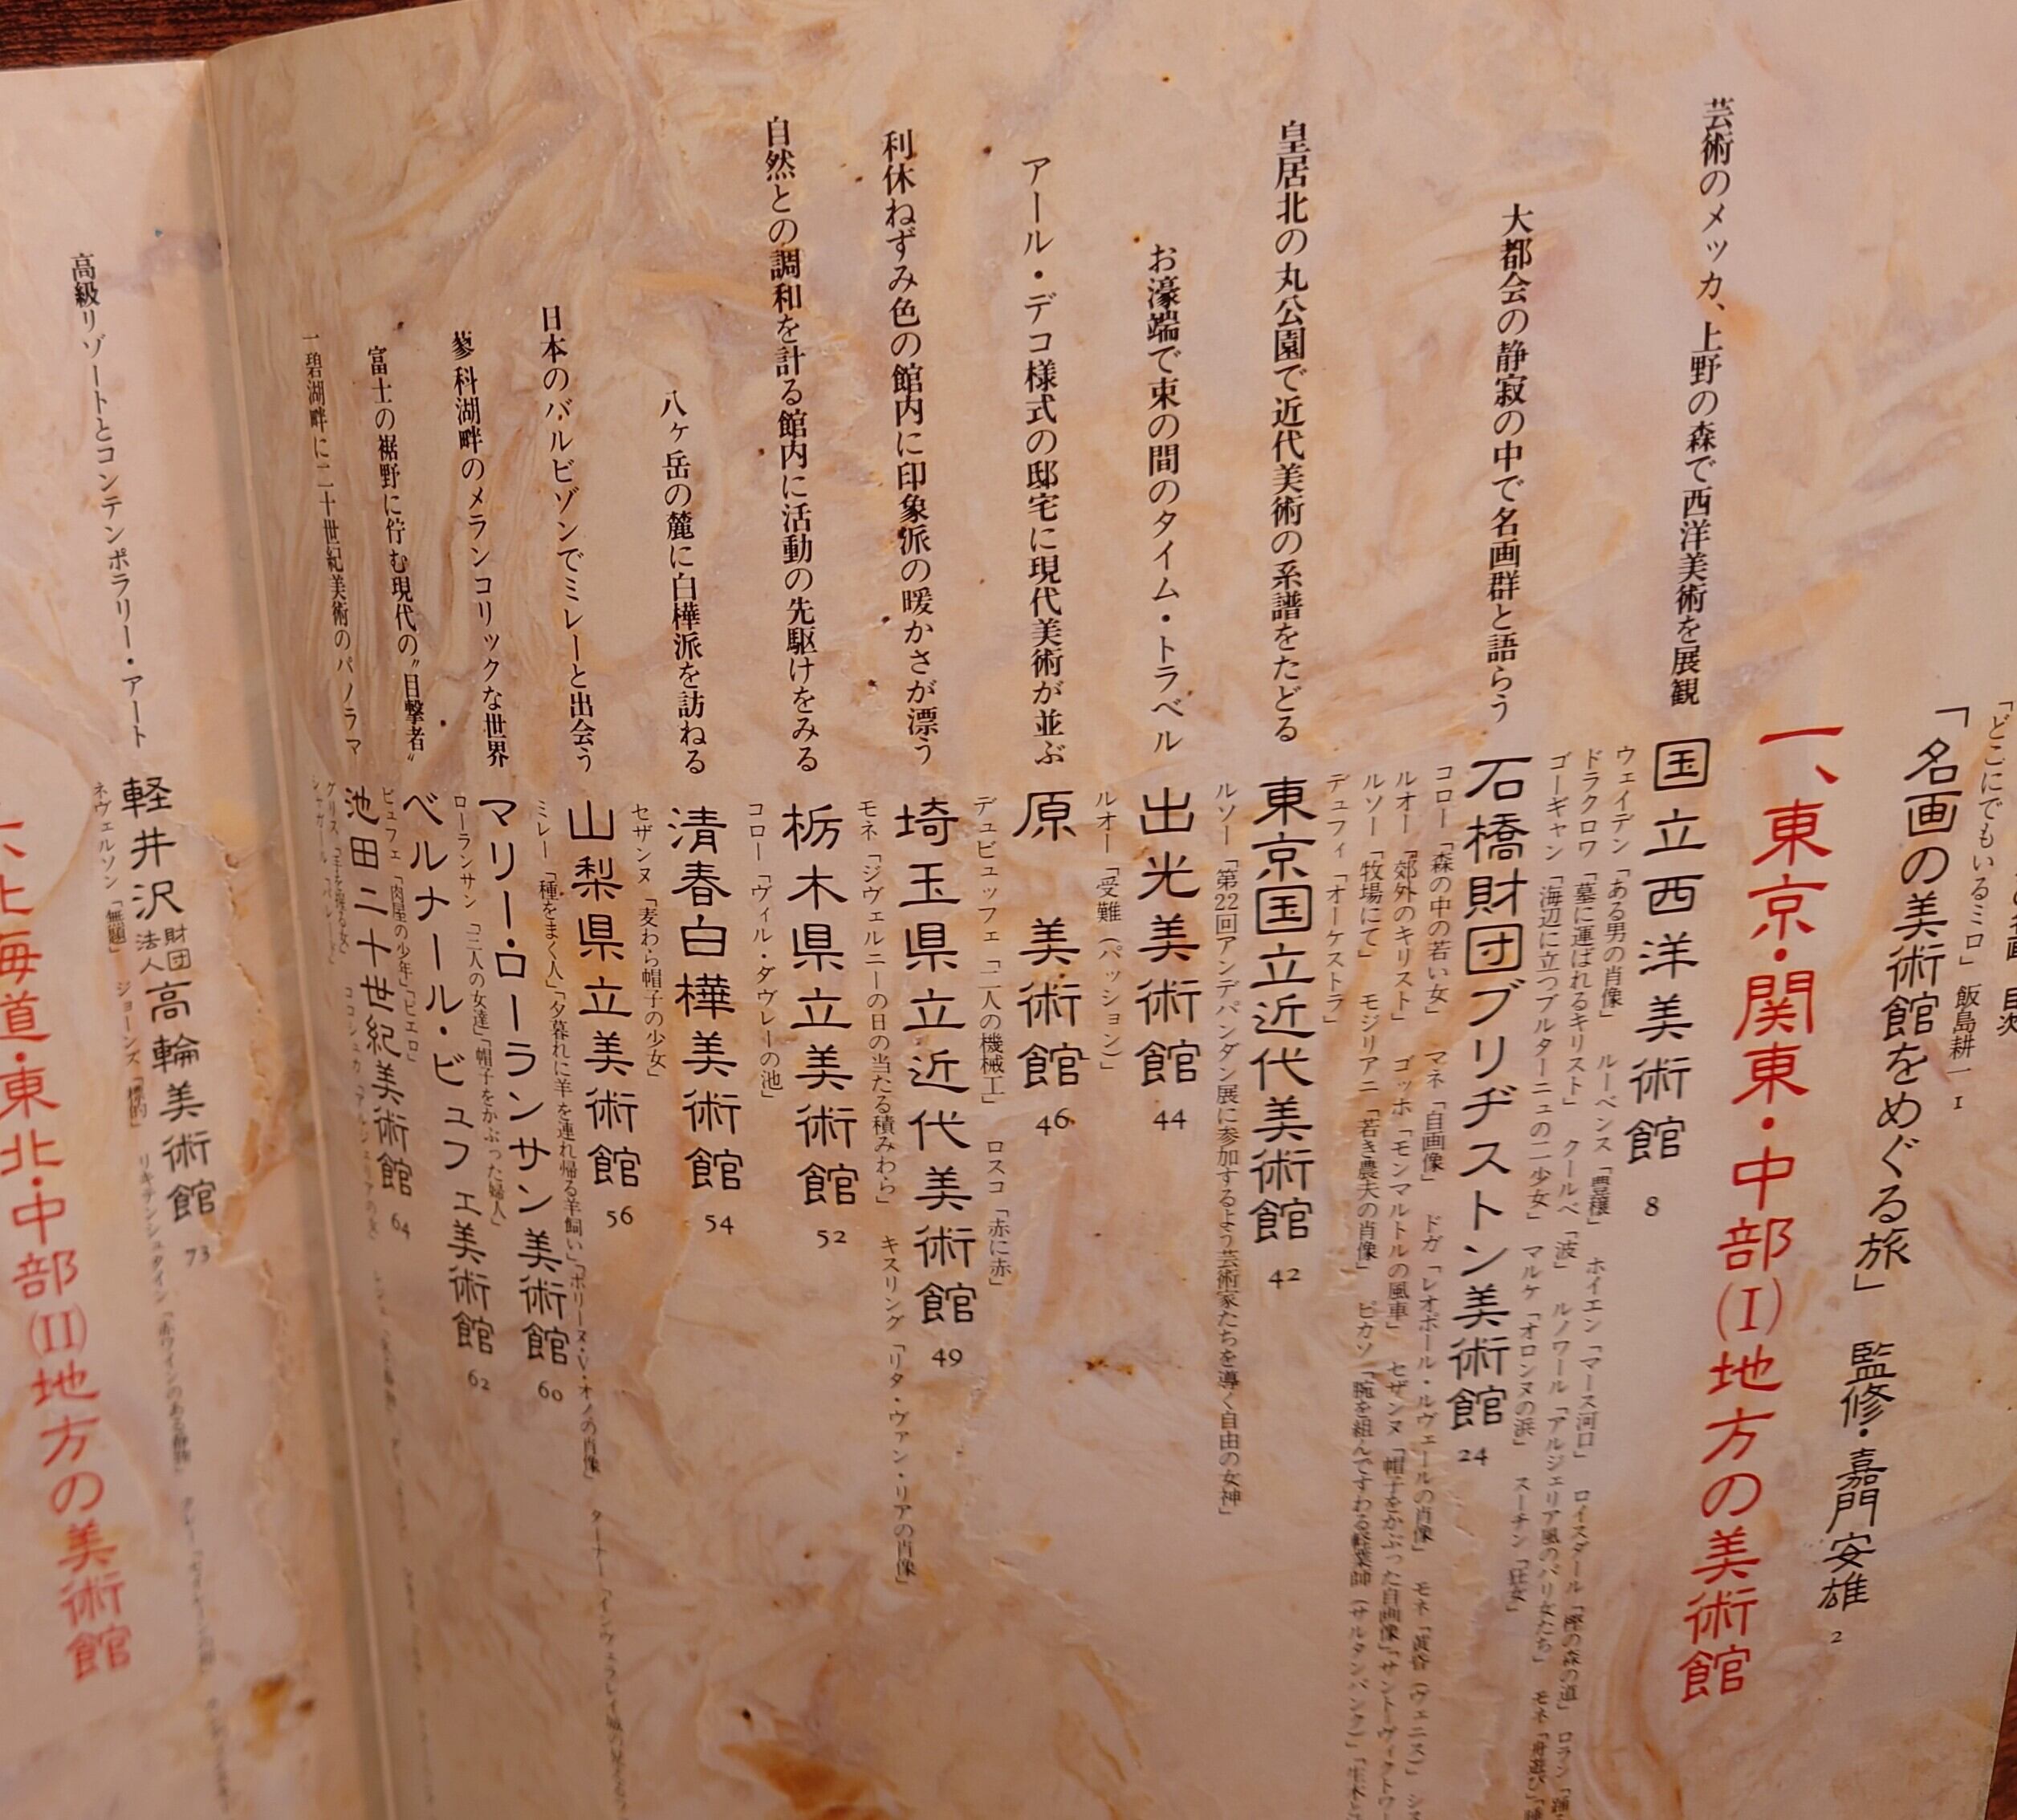 「どこにでもいるミロ」 飯島耕一 1
「名画の美術館をめぐる旅」 監修・嘉門安雄 2
一、東京・関東・中部(I)地方の美術館
芸術のメッカ、上野の森で西洋美術を展観
国立西洋美術館 8
ウェイデン「ある男の肖像」 ルーベンス「豊穣」 ホイエン「マース河口」 ロイスダール「樫の森の道」 ロラン
ドラクロワ「墓に運ばれるキリスト」 クールベ「波」 ルノワール「アルジェリア風のパリ女たち」 モネ「舟遊び」
ゴーギャン「海辺に立つブルターニュの二少女」 マルケ「オロンヌの浜」 スーチン「狂女」
大都会の静寂の中で名画群と語らう
石橋財団ブリヂストン美術館 24
コロー「森の中の若い女」 マネ「自画像」 ドガ「レオポール・ルヴェールの肖像」 モネ「黄昏(ヴェニス)」
ルオー「郊外のキリスト」 ゴッホ「モンマルトルの風車」 セザンヌ「帽子をかぶった自画像」「サント=ヴィクトワー
ルソー「牧場にて」 モジリアニ「若き農夫の肖像」 ピカソ「腕を組んですわる軽業師(サルタンバンク)」「生木と
デュフィ「オーケストラ」
皇居北の丸公園で近代美術の系譜をたどる
東京国立近代美術館 42
ルソー「第22回アンデパンダン展に参加するよう芸術家たちを導く自由の女神」
お濠端で束の間のタイム・トラベル
出光美術館 44
ルオー「受難(パッション)」
アール・デコ様式の邸宅に現代美術が並ぶ
原 美術館 46
デュビュッフェ「二人の機械工」 ロスコ「赤に赤」
利休ねずみ色の館内に印象派の暖かさが漂う
埼玉県立近代美術館 49
モネ「ジヴェルニーの日の当たる積みわら」 キスリング「リタ・ヴァン・リアの肖像」
自然との調和を計る館内に活動の先駆けをみる
栃木県立美術館 52
コロー「ヴィル・ダヴレーの池」 ターナー
八ヶ岳の麓に白樺派を訪ねる
清春白樺美術館 54
セザンヌ「麦わら帽子の少女」
日本のバルビゾンでミレーと出会う
山梨県立美術館 56
ミレー「種をまく人」「夕暮れに羊を連れ帰る羊飼い」「ポリーヌ・V・オノの肖像」
蓼科湖畔のメランコリックな世界
マリー・ローランサン美術館 60
ローランサン「三人の女達」「帽子をかぶった婦人」
富士の裾野に佇む現代の〝目撃者〟
ベルナール・ビュフェ美術館 62
ビュフェ「肉屋の少年」「ピエロ」
一碧湖畔に二十世紀美術のパノラマ
池田二十世紀美術館 64
高級リゾートとコンテンポラリー・アート
軽井沢 財団法人 高輪美術館 73
ネヴェルソン「無題」 ジョーンズ「標的」 リキテンシュタイン「赤ワインのある静物」
北海道・東北・中部(II)地方の美術館